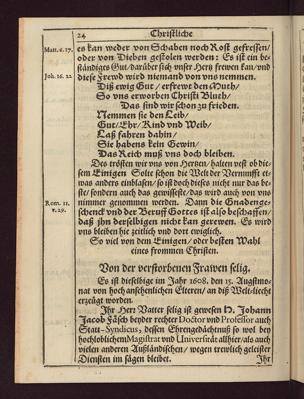 24 Christliche
Matt. 6. 17. es kan weder von Schaben noch Rost gefressen/
oder von Dieben gestolen werden: Es ist ein be-
ständiges Gut/ darüber sich unser Hertz frewen kan/ und
Joh. 16. 22 diese Frewd wird niemand von uns nemmen.
Diß ewig Gut/ erfrewt den Muth/
So uns erworben Christi Bluth/
Das sind wir schon zu frieden.
Nemmen sie den Leib/
Gut/ Ehr/ Kind und Weib/
Laß fahren dahin/
Sie habens kein Gewin/
Das Reich muß uns doch bleiben.
Des trösten wir uns von Hertzen/ halten vest ob die-
sem Einigen Solte schon die Welt der Vernunfft et-
was anders einblasen/ so ist doch dieses nicht nur das be-
ste/ sondern auch das gewisseste/ das wird auch von uns
nimmer genommen werden. Dann die Gnadenge-
Rom. 11. schenck und der Beruff Gottes ist also beschaffen/
v. 29. daß ihn derselbigen nicht kan gerewen. Es wird
uns bleiben hie zeitlich und dort ewiglich.
So viel von dem Einigen/ oder besten Wahl
eines frommen Christen.
Von der verstorbenen Frawen selig.
Es ist dieselbige im Jahr 1608. den 15. Augstmo-
nat von hoch ansehenlichen Elteren/ an diß Welt-liecht
erzeugt worden.
Ihr Herr Vatter selig ist gewesen H. Johann
Jacob Fäsch beyder rechter Doctor und Professor auch
Statt-Syndicus, dessen Ehrengedächtnuß so wol bey
hochloblichem Magistrat und Universität allhier/ als auch
vielen anderen Außländischen/ wegen trewlich geleister
Diensten im sägen bleibet. Ihr